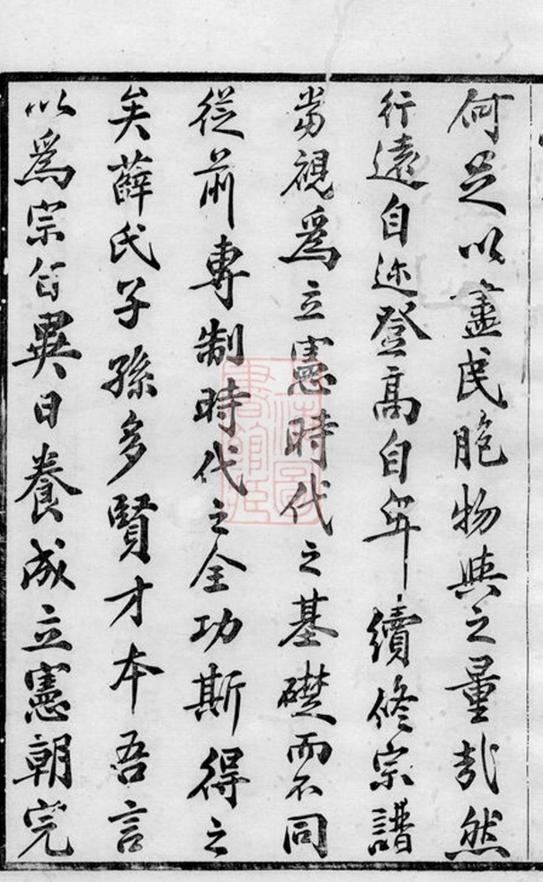 何足以盡民胞物與之量哉然
行遠自迩登高自卑續修宗譜
當視爲立憲時代之基礎而不同
從前專制時代之全功斯得之
矣薛氏子孫多賢才本吾言
以爲宗旨異日養成立憲朝完